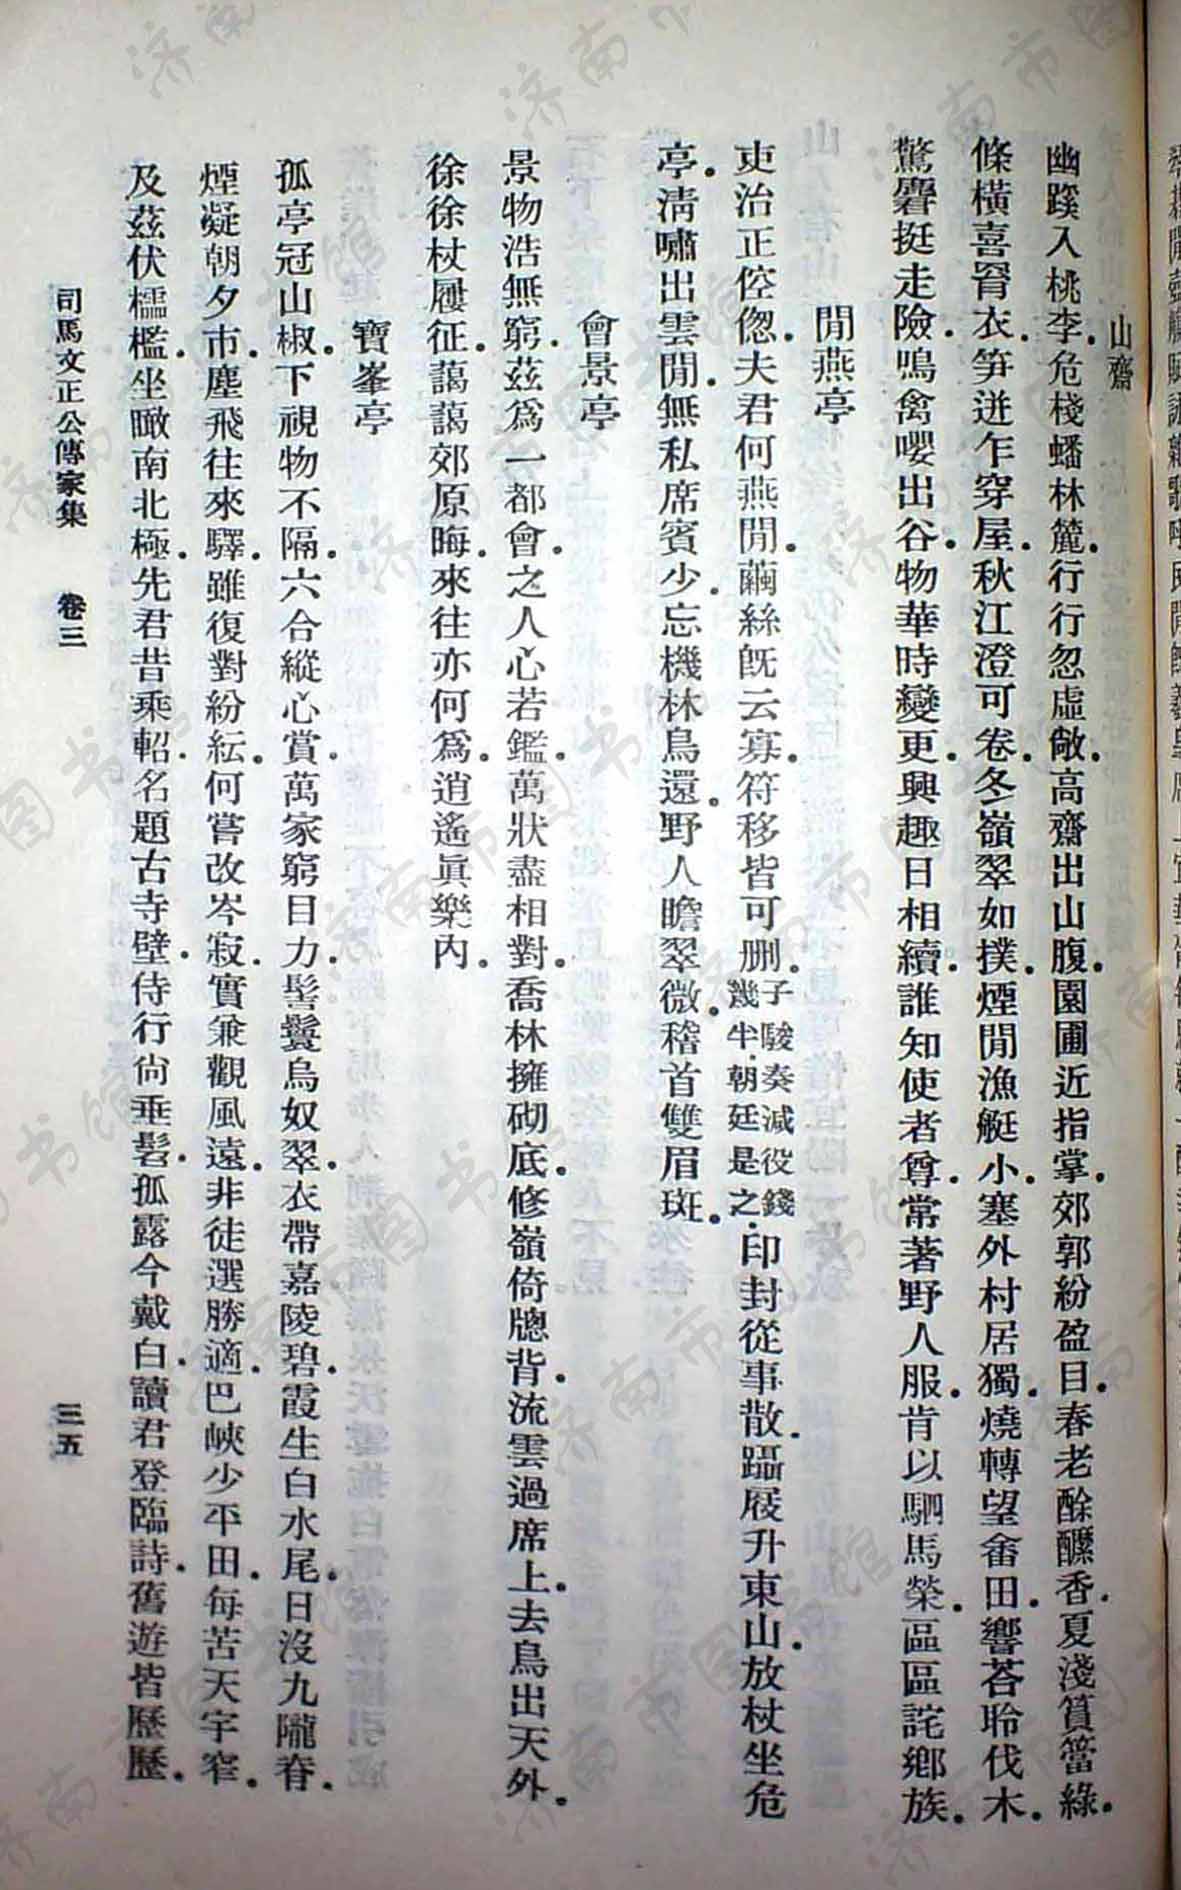 山齋
幽蹊入桃李.危棧蟠林麓.行行忽虛敞.高齋出山腹.園圃近指掌.郊郭紛盈目.春老酴醿香.夏淺篔簹綠.
條橫喜罥衣.笋迸乍穿屋.秋江澄可卷.冬嶺翠如撲.煙開漁艇小.塞外村居獨.燒轉望畬田.響荅聆伐木.
驚麏挺走險.鳴禽嚶出谷.物華時變更.興趣日相續.誰知使者尊.常著野人服.肯以駟馬榮.區區詫鄉族.
閒燕亭
吏治正倥偬.夫君何燕閒.繭絲旣云寡.符移皆可删.子駿奏減役錢幾半.朝廷是之.印封從事散.躡屐升東山.放杖坐危
亭.淸嘯出雲間.無私席賓少.忘機林鳥還.野人瞻翠微.稽首雙眉斑.
會景亭
景物浩無窮.茲爲一都會.之人心若鑑.萬狀盡相對.喬林擁砌底.修嶺倚牕背.流雲過席上.去鳥出天外.
徐徐杖屨征.藹藹郊原晦.來往亦何爲.逍遙眞樂內.
寶峯亭
孤亭冠山椒.下視物不隔.六合縱心賞.萬家窮目力.髻鬟烏奴翠.衣帶嘉陵碧.霞生白水尾.日沒九隴脊.
煙凝朝夕市.塵飛往來驛.雖復對紛紜.何嘗改岑寂.實兼觀風遠.非徒選勝適.巴峽少平田.每苦天宇窄.
及茲伏檽檻.坐瞰南北極.先君昔乘軺.名題古寺壁.侍行尙垂髫.孤露今戴白.讀君登臨詩.舊遊皆歷歷.
司馬文正公傳家集 卷三 三五